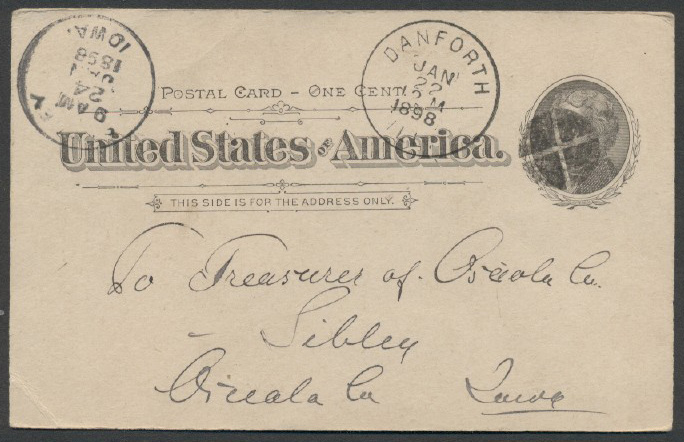 IOWA.
1898
JAN
24
9 AM
DANFORTH
JAN
22
M
1898
ILL.
POSTAL CARD – ONE CENT.
United States of America.
THIS SIDE IS FOR THE ADDRESS ONLY.
To Treasurer of. Osceola Co.
Sibley
Osceola Co Iowa